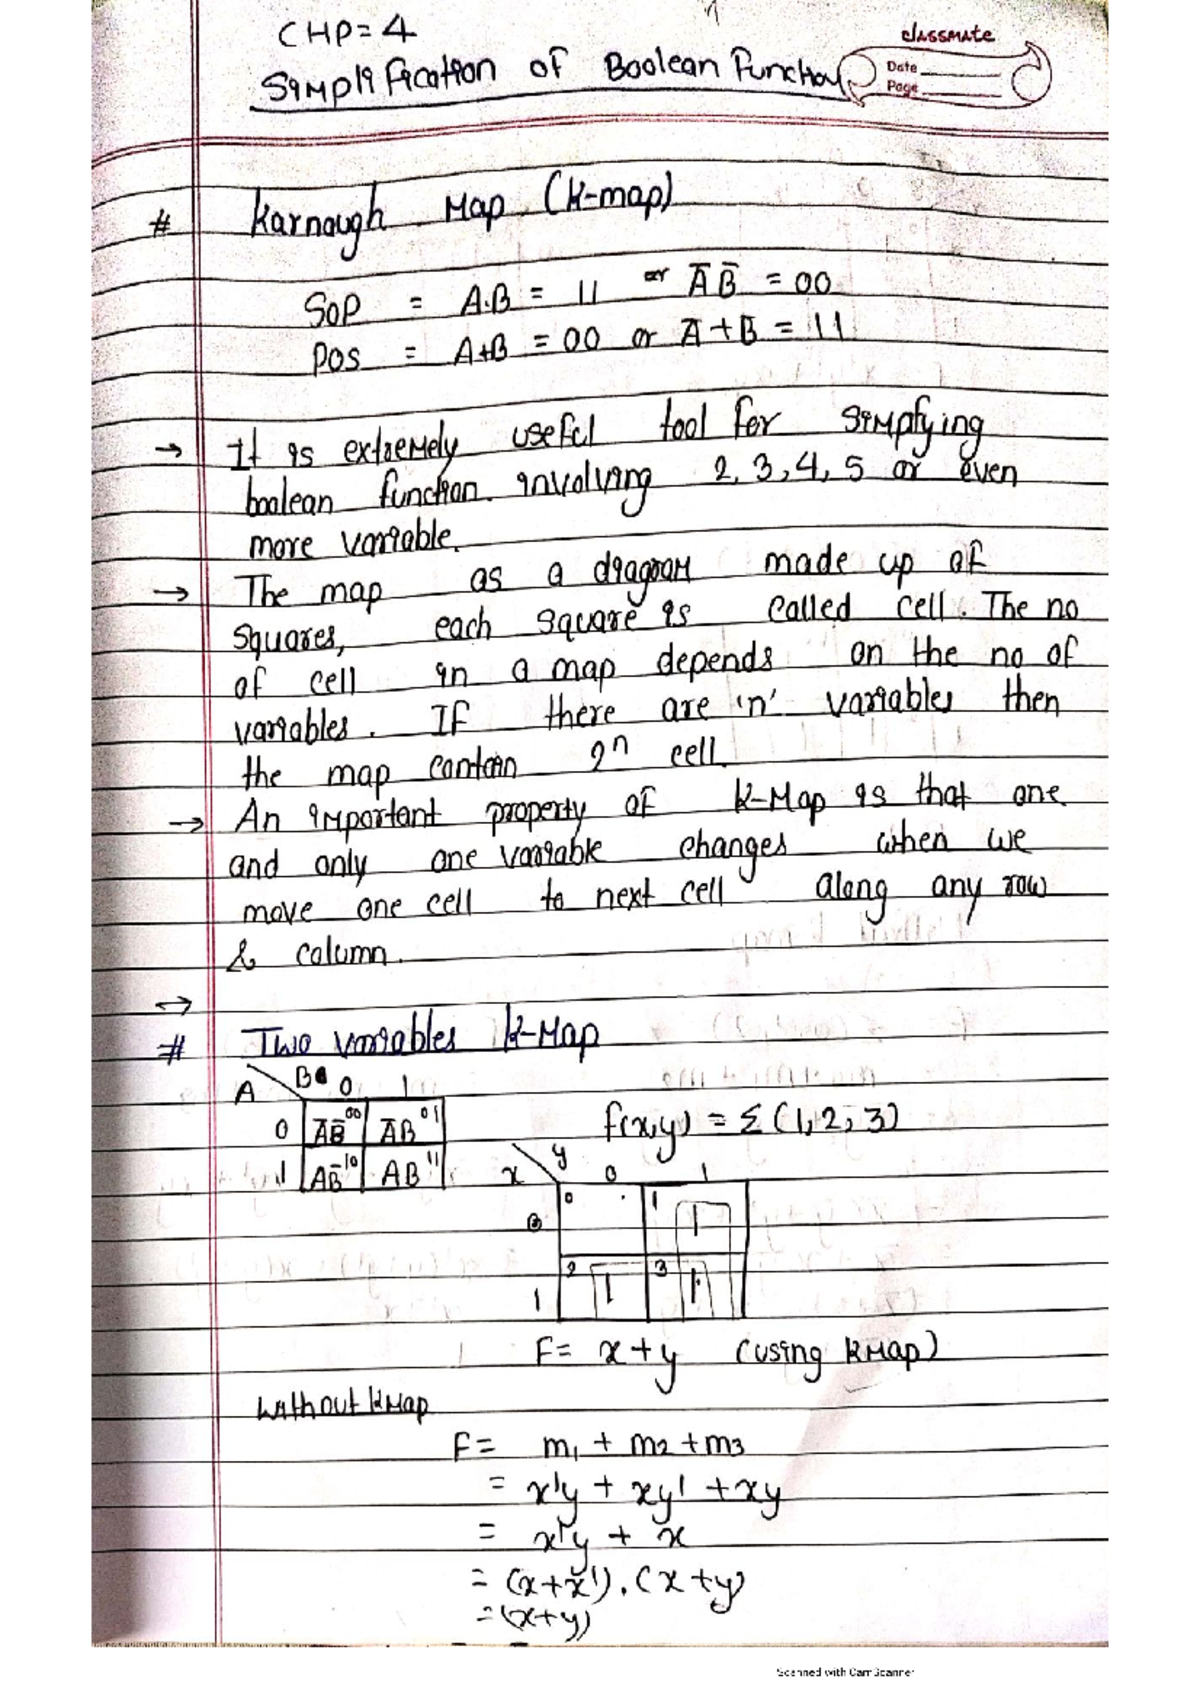 CHP=4
classmate
Simplification of Boolean Function
Date
Page
# Karnaugh Map (K-map)
SOP = A.B = 11 or A̅ B̅ = 00
POS = A+B = 00 or A̅+B̅ = 11
→ It is extremely useful tool for simplying
boolean function involving 2,3,4,5 or even
more variable.
→ The map as a diagram made up of
squares, each square is called cell. The no
of cell in a map depends on the no of
variables. If there are 'n' variables then
the map contain 2ⁿ cell.
→ An important property of K-Map is that one
and only one variable changes when we
move one cell to next cell along any row
& column.
↔
# Two variables K-Map
A B 0 1
0 A̅B̅ 00 A̅B 01
1 AB̅ 10 AB 11
f(x,y) = Σ (1,2,3)
x y 0 1
0 0 1 1
1 2 1 3 1
F= x+y (using kmap)
without kmap
F= m₁ + m₂ + m₃
= x'y + xy' + xy
= x'y + x
= (x+x').(x+y)
=(x+y)
Scanned with CamScanner